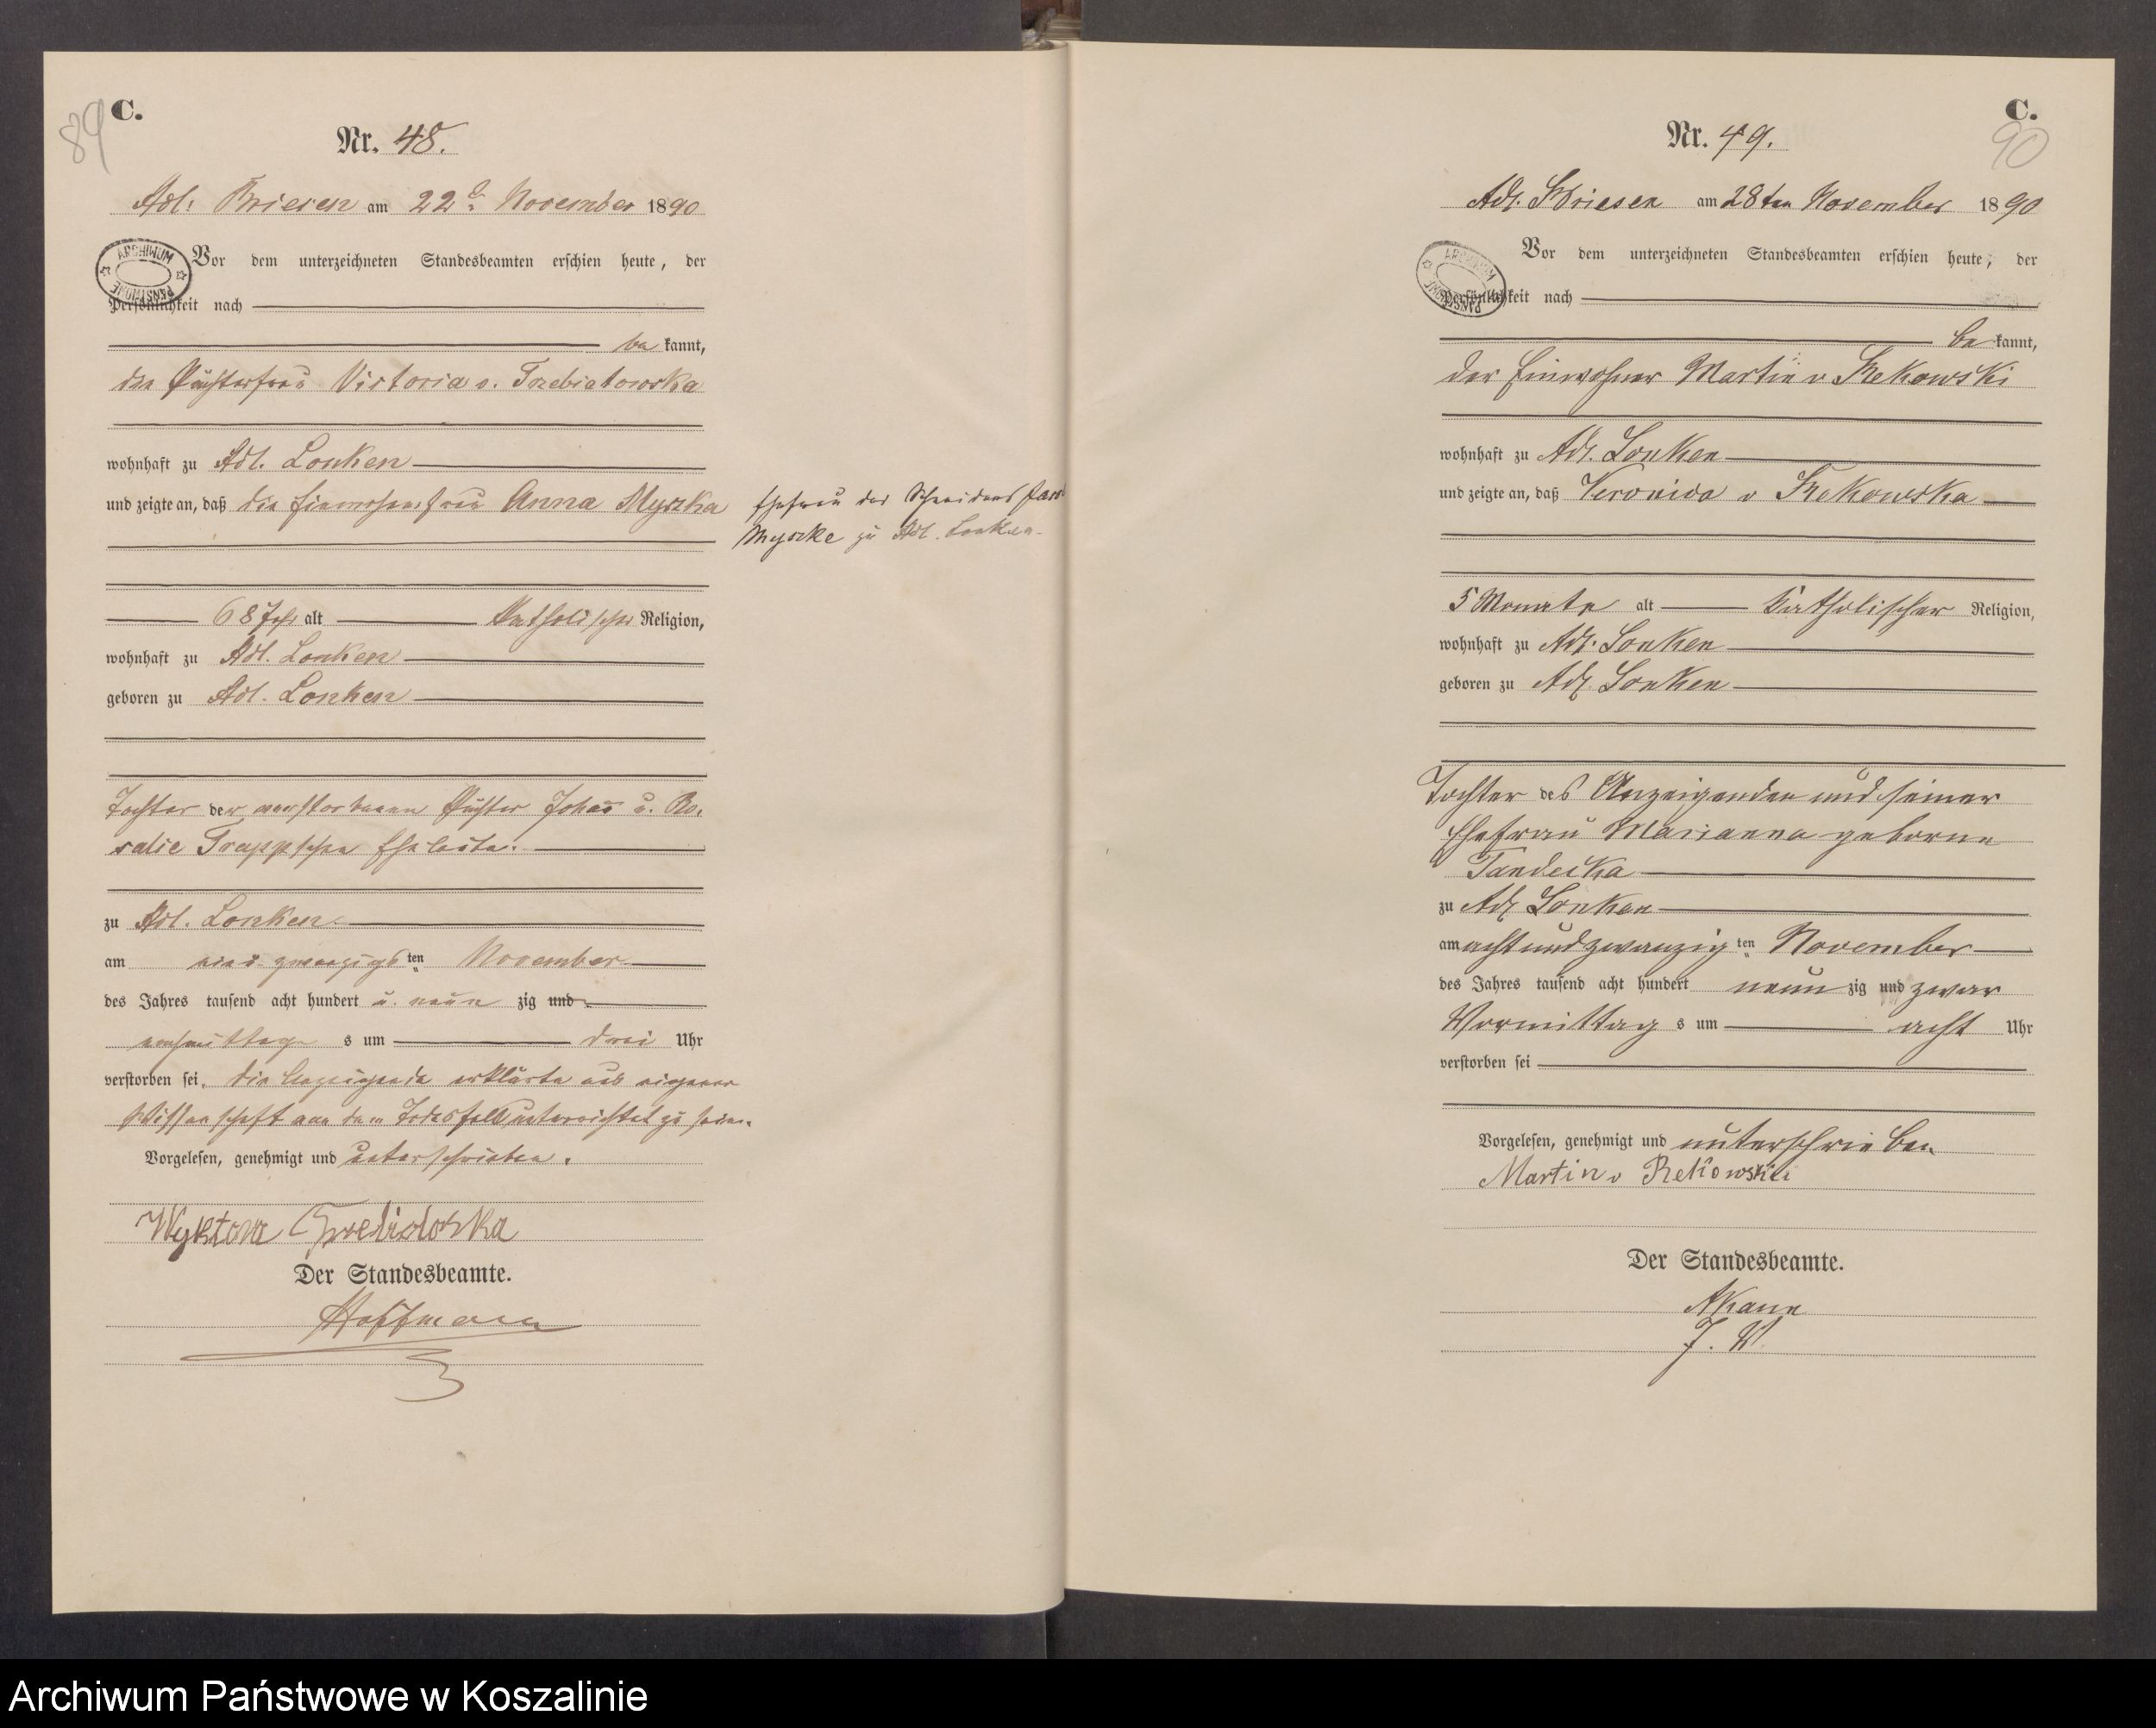 89
C.
Nr. 48.
Adl: Briesen am 22t. November 1890
ARCHIWUM PAŃSTWOWE
Vor dem unterzeichneten Standesbeamten erschien heute, der
Persönlichkeit nach
be kannt,
die Pächterfrau Victoria v. Trzebiatowska
wohnhaft zu Adl. Lonken
und zeigte an, daß die Einwohnerfrau Anna Myszka
Ehefrau des Schneiders
Myszke zu Adl. Lonken.
68 Jahr alt Katholischer Religion,
wohnhaft zu Adl. Lonken
geboren zu Adl. Lonken
Tochter der verstorbenen Pächter Johann u. Ro-
salie Trappschen Eheleute.
zu Adl. Lonken
am ein u. zwanzigsten November
des Jahres tausend acht hundert u. neun zig und
nachmittags um drei Uhr
verstorben sei. Die Anzeigende erklärte aus eigener
Wissenschaft von dem Todesfall unterrichtet zu sein.
Vorgelesen, genehmigt und unterschrieben.
Wyktorva
Der Standesbeamte.
Hoffmann
C.
90
Nr. 49.
Adl. Briesen am 28ten November 1890
ARCHIWUM PAŃSTWOWE
Vor dem unterzeichneten Standesbeamten erschien heute, der
Persönlichkeit nach
be kannt,
der Einwohner Martin v Rekowski
wohnhaft zu Adl. Lonken
und zeigte an, daß Veronica v Rekowska
5 Monate alt Katholischer Religion,
wohnhaft zu Adl. Lonken
geboren zu Adl. Lonken
Tochter des Anzeigenden und seiner
Ehefrau Marianna geborne
Tandecka
zu Adl Lonken
am acht und zwanzigten November
des Jahres tausend acht hundert neun zig und zwar
Vormittags um acht Uhr
verstorben sei
Vorgelesen, genehmigt und unterschrieben.
Martin v Rekowski
Der Standesbeamte.
J. V.
Archiwum Państwowe w Koszalinie